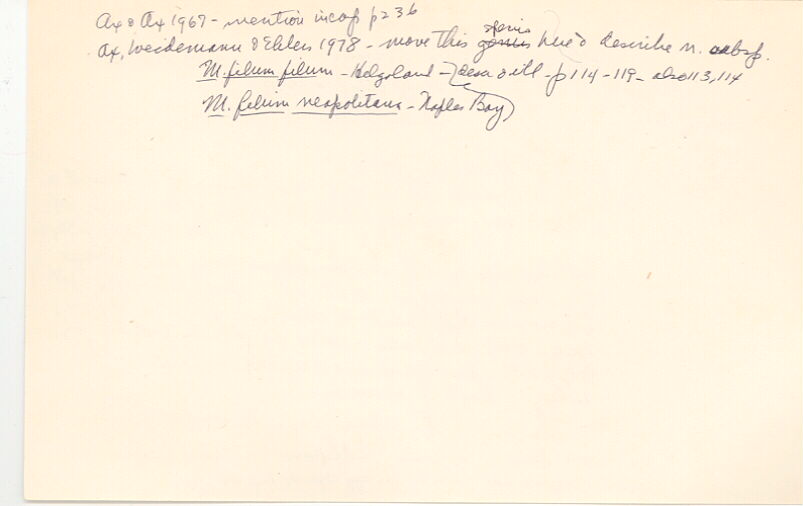 Ax & Ax 1967 - mention in cap p 236
Ax, Weidemann & Ehlers 1978 - move this genus genus here & describe n. subsp.
M. filum filum - Helgoland - desc & ill - p 114 - 119 - also 113, 114
M. filum neapolitana - Naples Bay